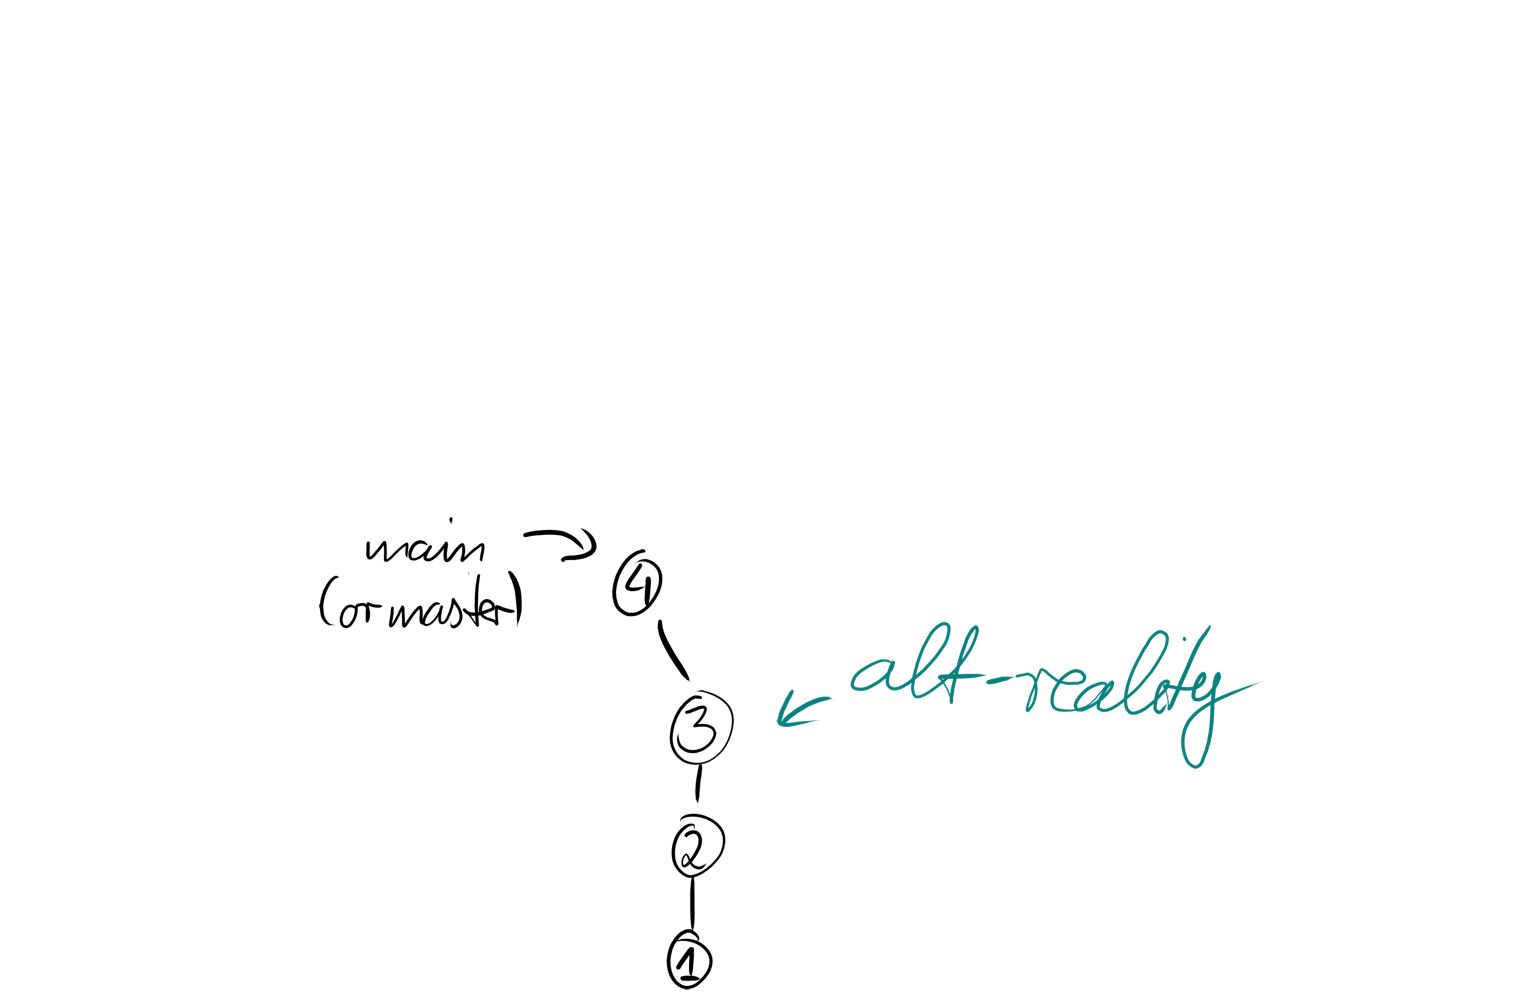 main
(or master)
4
alt-reality
3
2
1